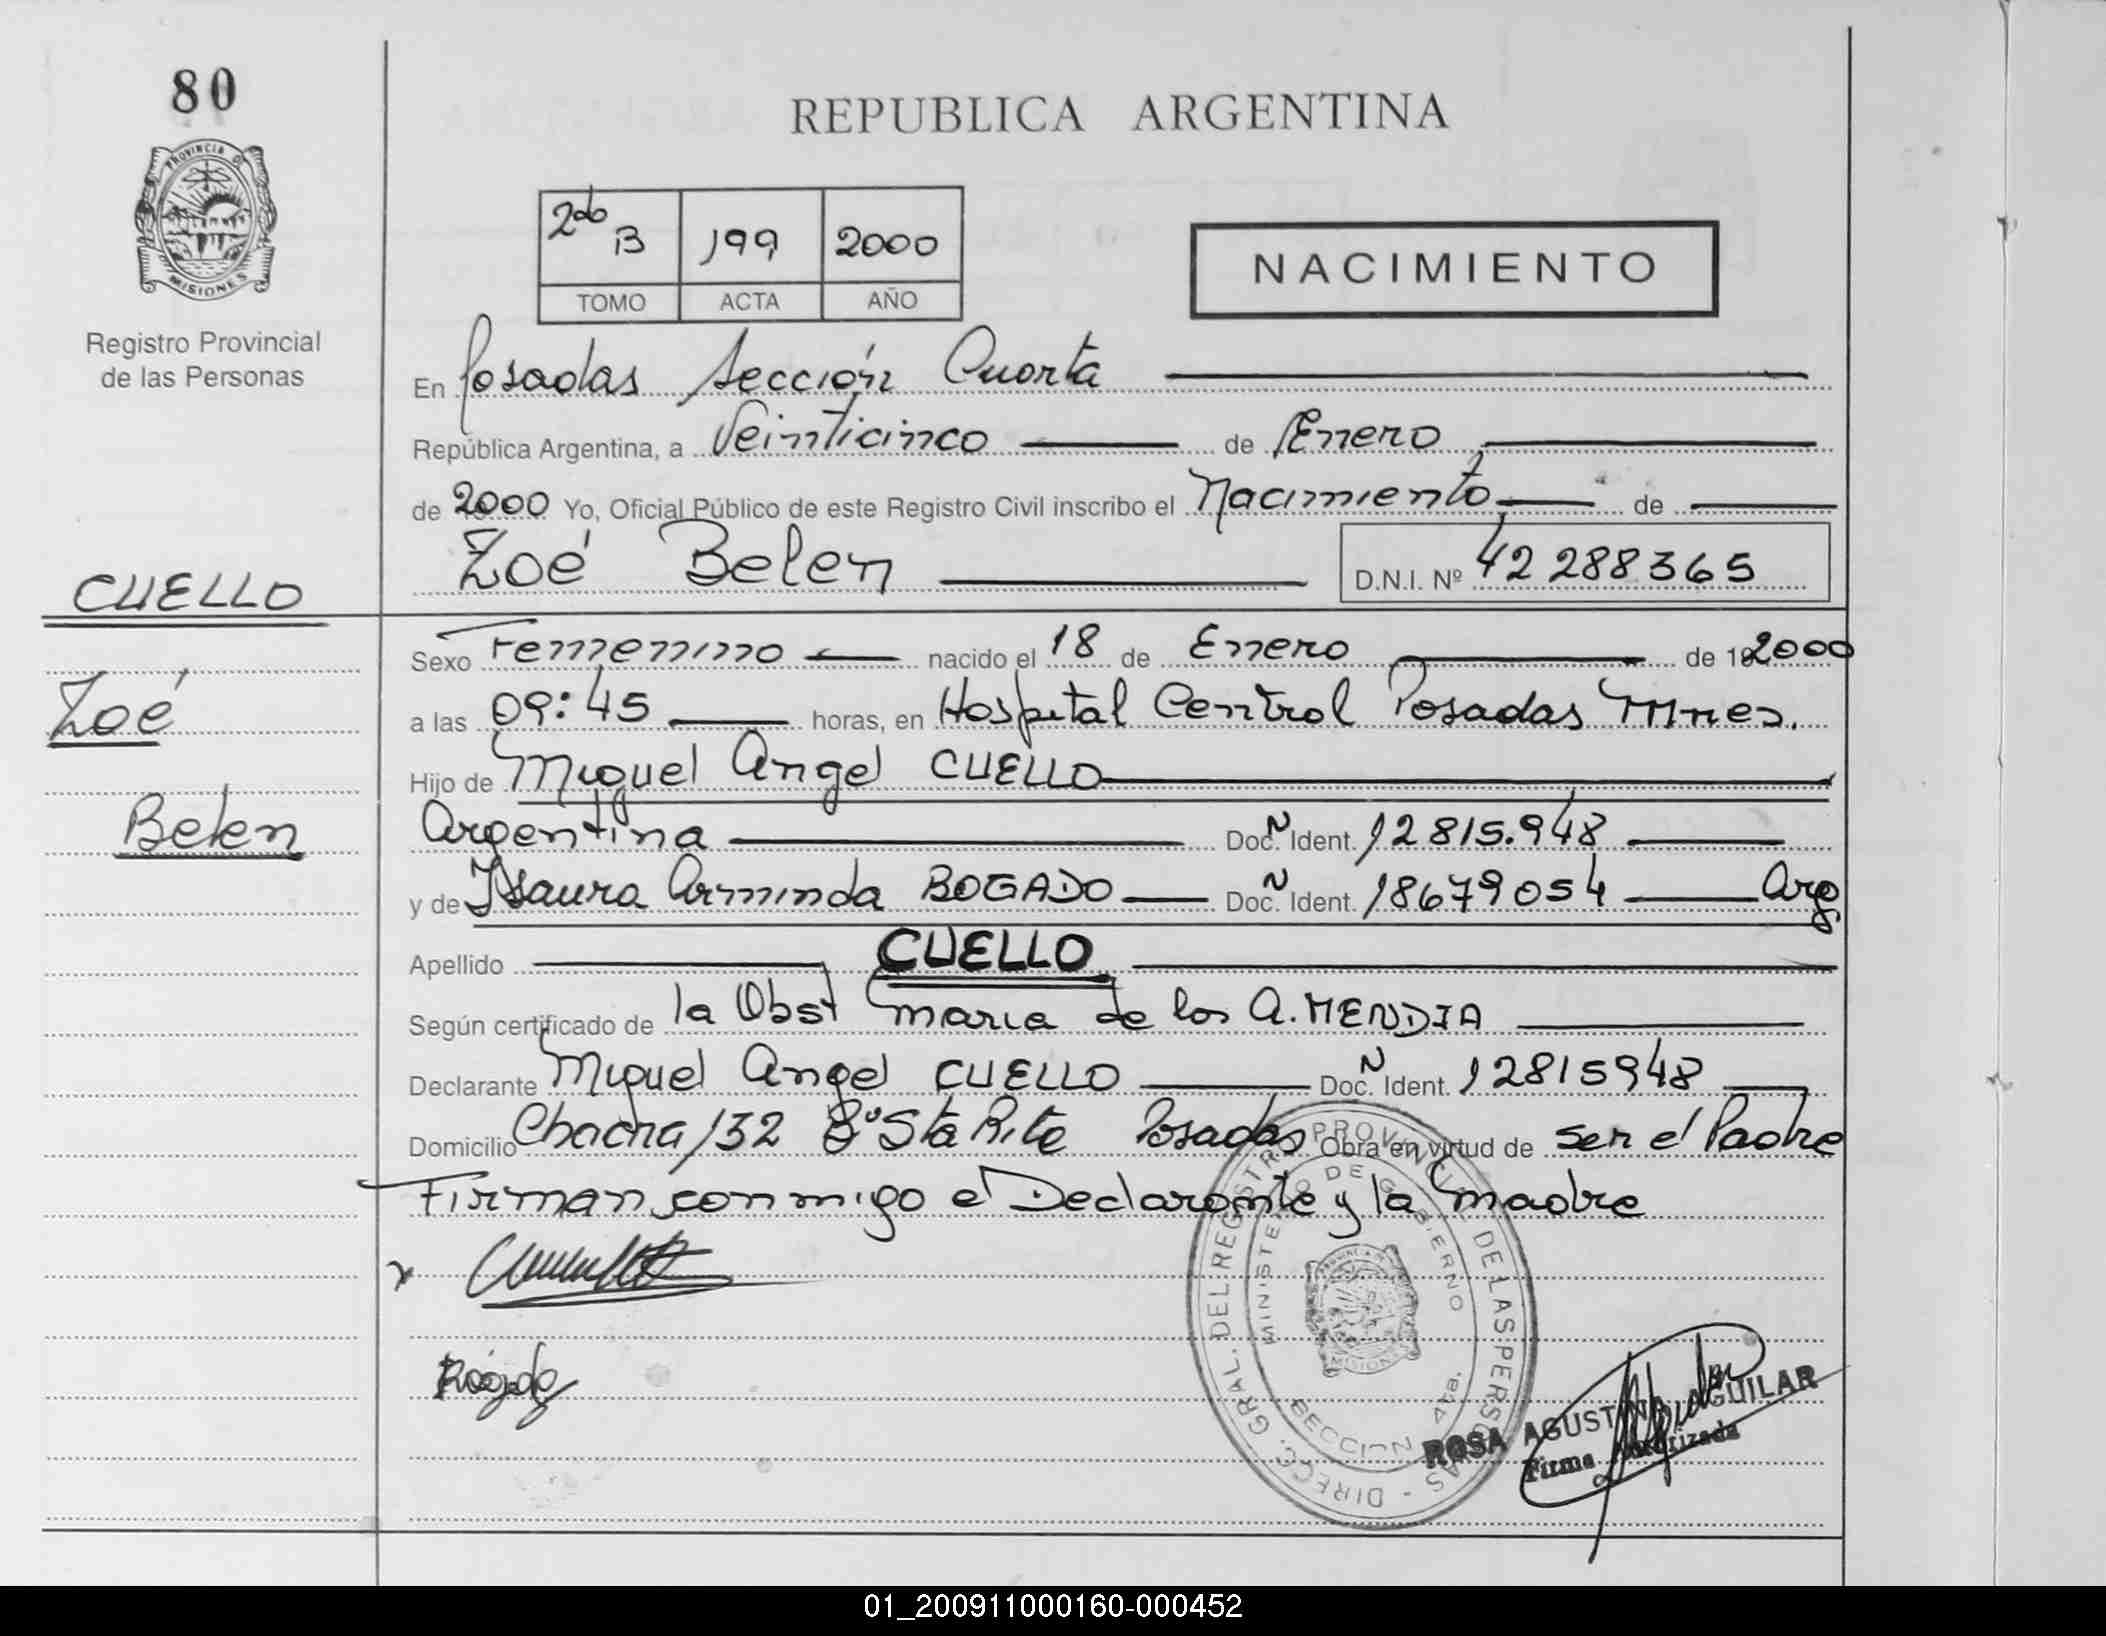 80
PROVINCIA DE
MISIONES
Registro Provincial
de las Personas
REPUBLICA ARGENTINA
2do B 199 2000
TOMO ACTA AÑO
NACIMIENTO
En Posadas Sección Cuarta
República Argentina, a Veinticinco de Enero
de 2000 Yo, Oficial Público de este Registro Civil inscribo el Nacimiento de
Zoé Belen D.N.I. Nº 42 288365
CUELLO
Zoé
Belen
Sexo Femenino nacido el 18 de Enero de 2000
a las 09:45 horas, en Hospital Central Posadas Mnes.
Hijo de Miguel Angel CUELLO
Argentina Doc. N Ident. 12815.948
y de Isaura Arminda BOGADO Doc. N Ident. 18679054 Arg
Apellido CUELLO
Según certificado de la Obst Maria de los A. MENDIA
Declarante Miguel Angel CUELLO Doc. N Ident. 12815948
Domicilio Chacra 132 Bº Sta Rita Posadas Obra en virtud de ser el Padre
Firman conmigo el Declarante y la madre
DIRECC. GRAL. DEL REGISTRO PROVINCIAL DE LAS PERSONAS
MINISTERIO DE GOBIERNO
SECCION 4ta.
MISIONES
ROSA AGUSTINA AGUILAR
Firma Autorizada
01_200911000160-000452